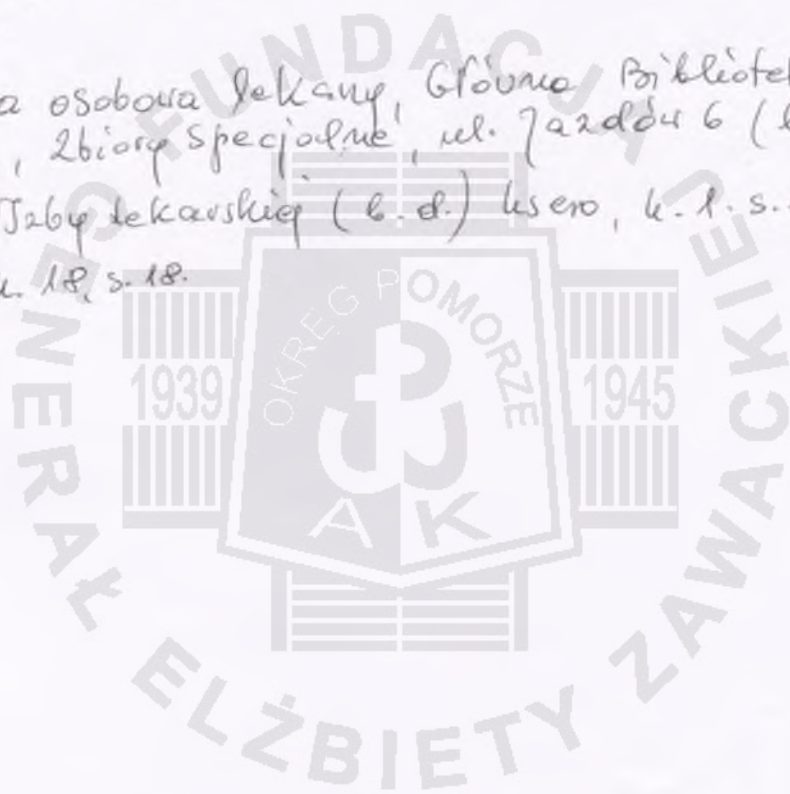 a osobowa lekarzy, Główna Bibliotek
, Zbiory Specjalne, ul. Jazdów 6 (
Izby lekarskiej (b.d.) ksero, k. 1. s.
18, s. 18.
FUNDACJA GENERAŁ ELŻBIETY ZAWACKIEJ
OKRĘG POMORZE
1939
1945
A K